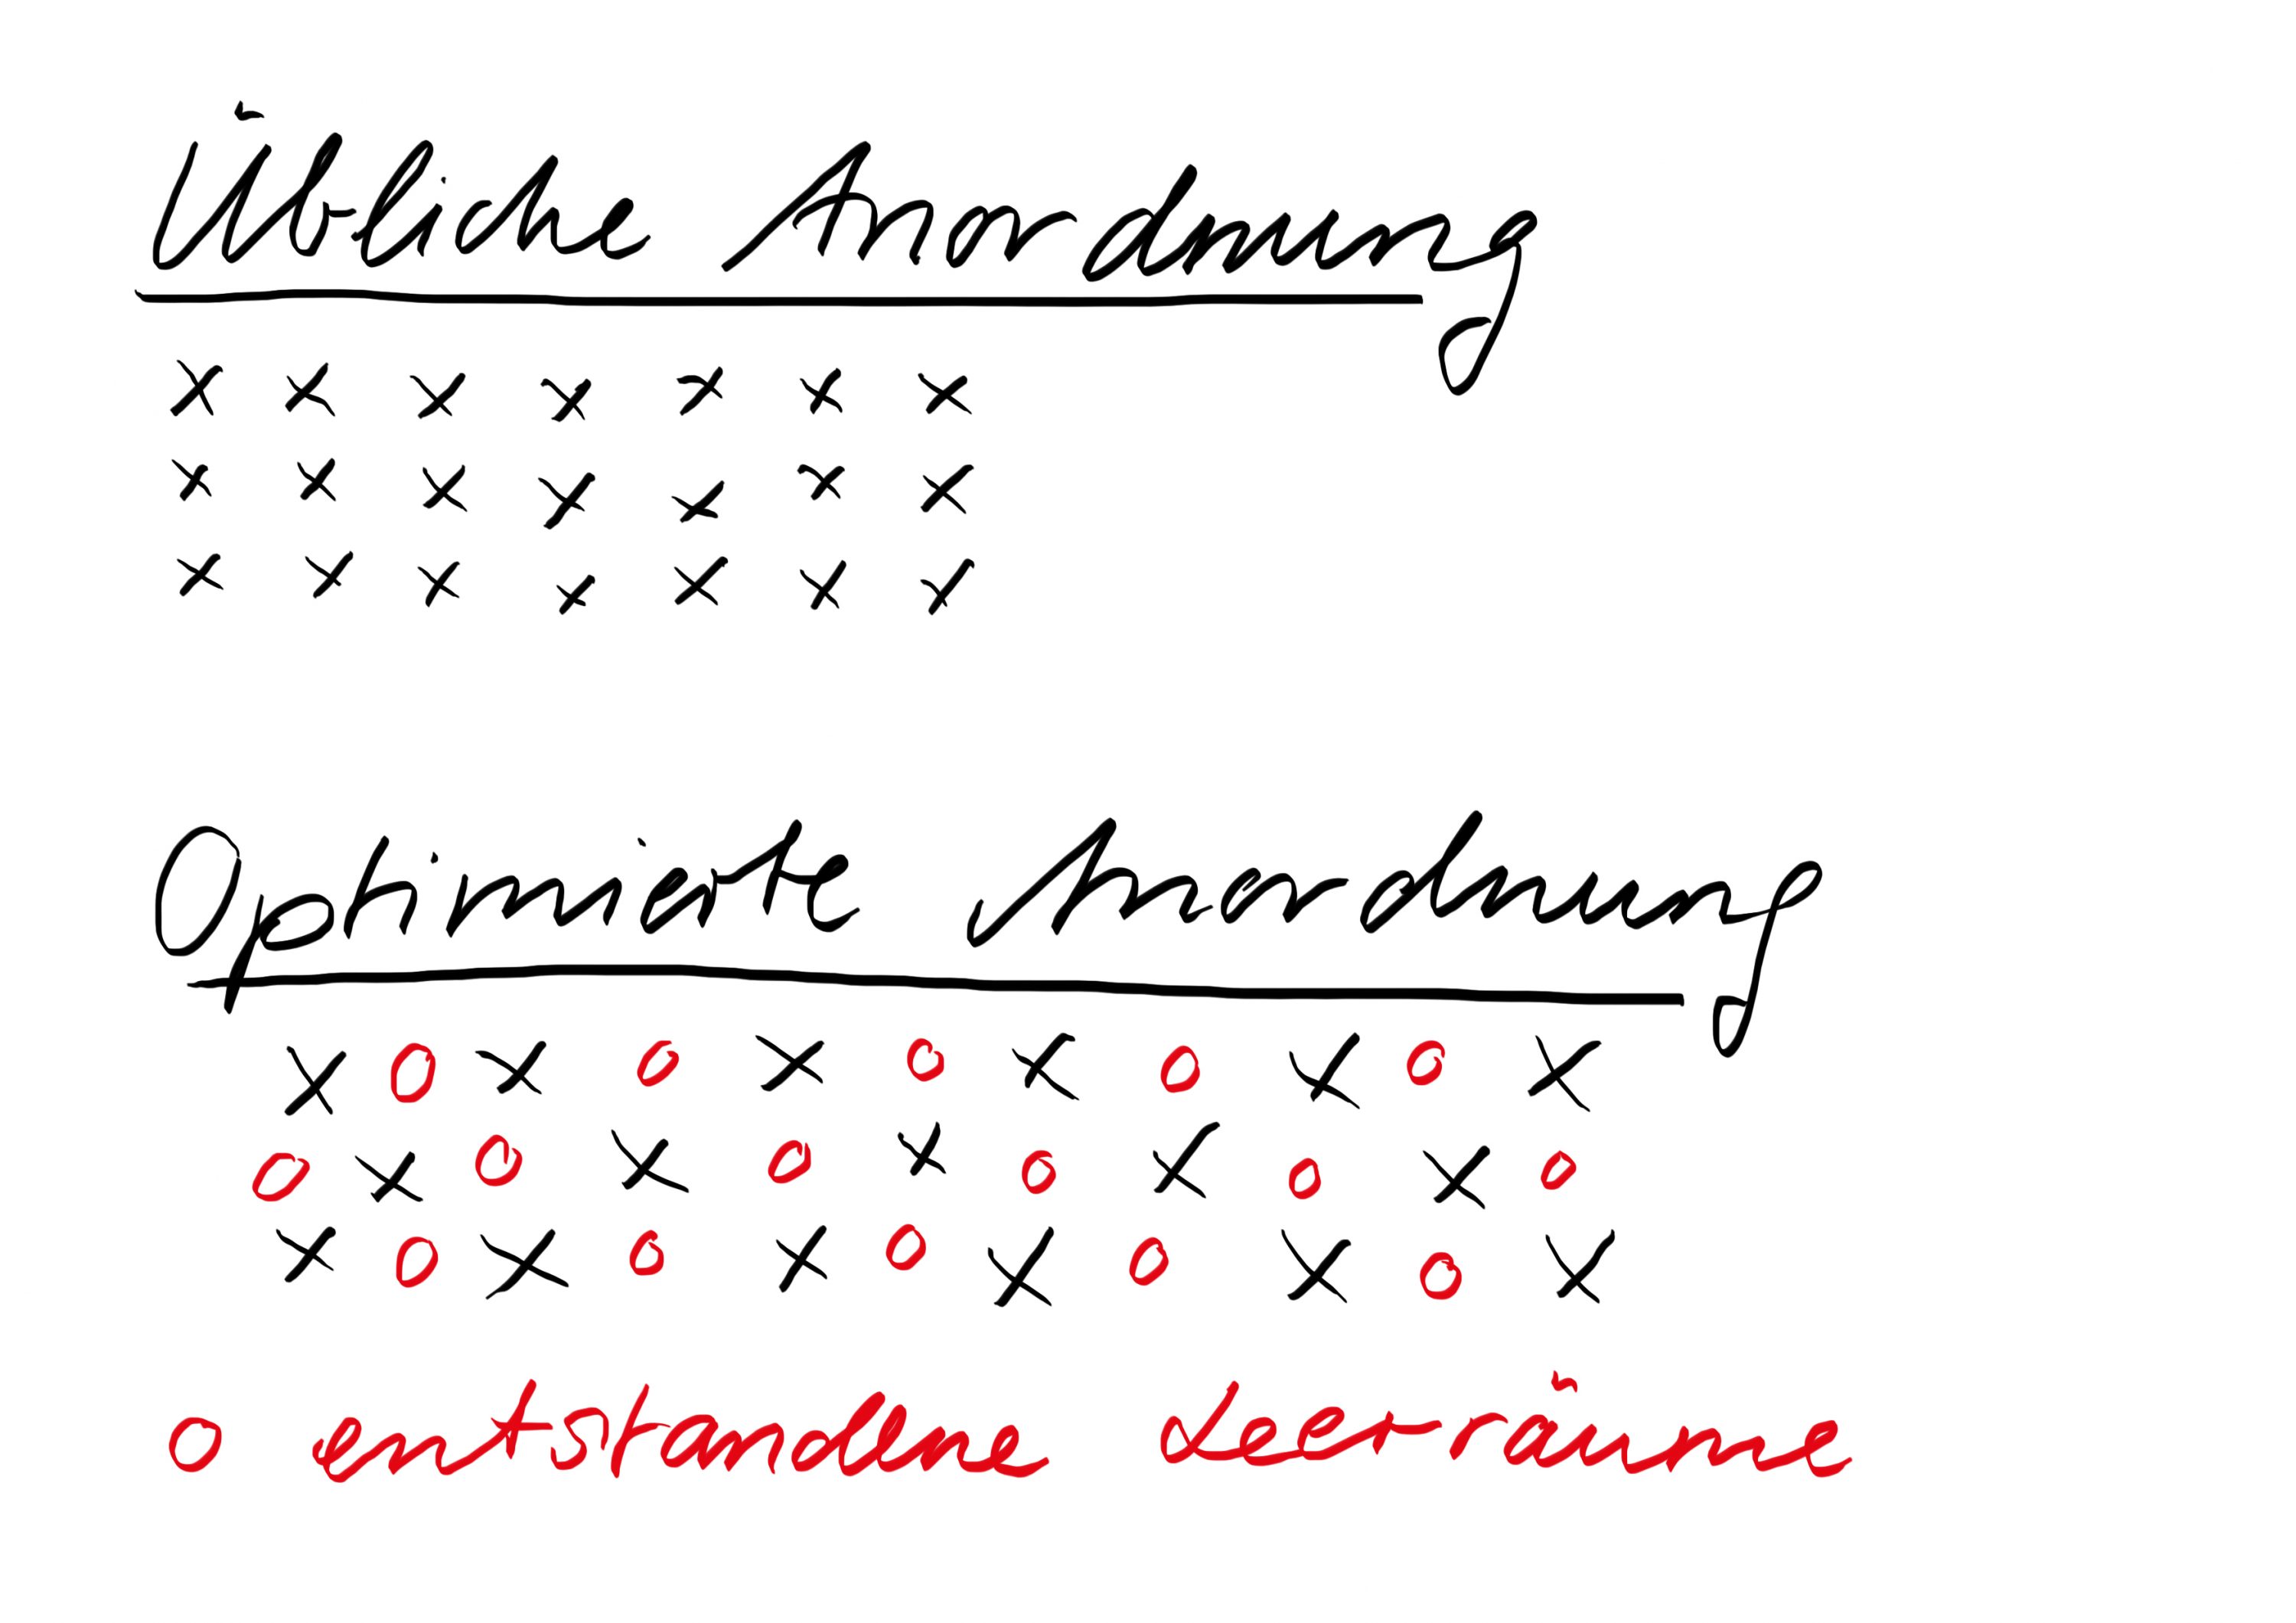 Übliche Anordnung
x x x x x x x
x x x x x x x
x x x x x x x
Optimierte Anordnung
x o x o x o x o x o x
o x o x o x o x o x o
x o x o x o x o x o x
o entstandene Leerräume